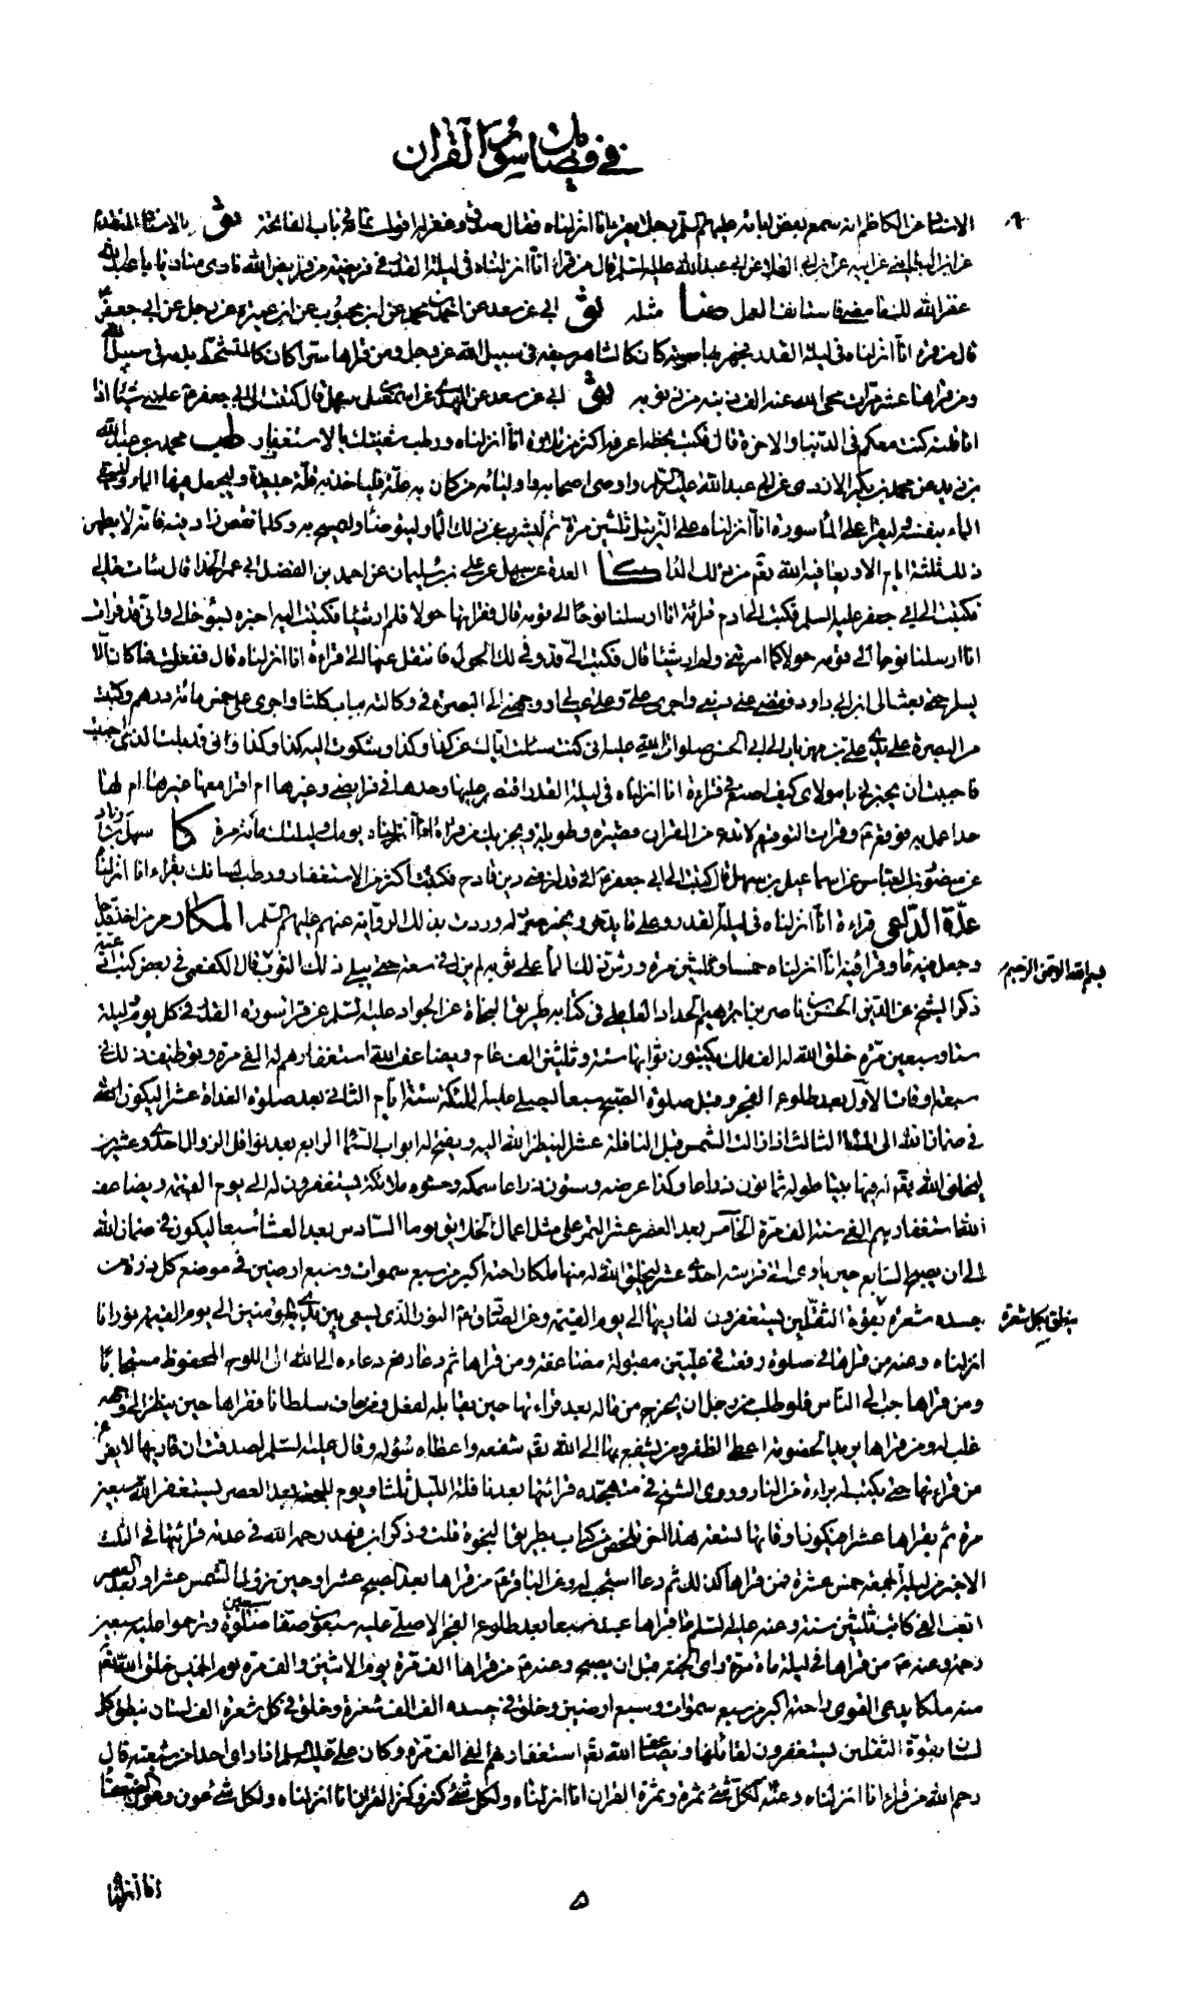 في فضائل سور القران
الاسناد عن الكاظم انه سمع بعض ابائه عليهم السلم رجل يقرء انا انزلناه فقال صدق وغفر له اقول تمامه في باب الفاتحة ثو بالاسناد المتقدم
عن ابن البطائني عن ابيه عن ابي العلا عن ابي عبدالله عليه السلم قال من قرء انا انزلناه في ليلة القدر في فريضة من فرايض الله نادى مناد يا عبدالله
غفر الله لك ما مضى فاستانف العمل ضا مثله ثو ابي عن سعد عن احمد بن محمد عن ابن محبوب عن ابن عميرة عن رجل عن ابي جعفر
قال من قرء انا انزلناه في ليلة القدر يجهر بها صوته كان كالشاهر سيفه في سبيل الله عز وجل ومن قراها سرا كان كالمتشحط بدمه في سبيل الله
ومن قراها عشر مرات محى الله عنه الف ذنب من ذنوبه ثو ابي عن سعد عن النهدي عن اسمعيل بن سهل قال كتبت الى ابي جعفر علمني شيئا اذا
انا قلته كنت معكم في الدنيا والاخرة قال فكتب بخطه اعرفه اكثر من تلاوة انا انزلناه ورطب شفتيك بالاستغفار طب محمد بن عبدالله
بن زيد عن محمد بن بكر الازدي عن ابي عبدالله عليه السلم واوصى اصحابه واوليائه من كان به علة فلياخذ قلة جديدة وليجعل فيها الماء وليستقي
الماء بنفسه وليقرء على الماء سورة انا انزلناه على الترتيل ثلثين مرة ثم ليشرب من ذلك الماء وليتوضأ وليمسح به وكلما نقص زاد فيه فانه لا يظهر
ذلك ثلثة ايام الا ويعافيه الله تعم من ذلك الداء كا العدة عن سهل عن علي بن سليمان عن احمد بن الفضل ابي عمر الحذا قال ساءت حالي
فكتبت الى ابي جعفر عليه السلم فكتب الى ادم قرائة انا ارسلنا نوحا الى قومه قال فقراتها حولا فلم ار شيئا فكتبت اليه اخبره بسوء حالي واني قد قرات
انا ارسلنا نوحا الى قومه حولا كما امرتني ولم ار شيئا قال فكتب الى قد وفى لك الحول فانتقل عنها الى قراءة انا انزلناه قال ففعلت فما كان الا
يسيرا حتى بعث الى ابن ابي داود فقضى عني ديني واجرى علي وعلى عيالي ووجهني الى البصرة في وكالته بباب كلتا واجرى علي خمس مائة درهم وكتبت
من البصرة على يدي علي بن مهزيار الى ابي الحسن صلوات الله عليه اني كنت سئلت اباك عن كذا وكذا وشكوت اليه كذا وكذا واني قد نلت الذي احببت
فاحببت ان يخبرني يا مولاي كيف اصنع في قراءة انا انزلناه في ليلة القدر اقتصر عليها وحدها في فرايضي وغيرها ام اقرا معها غيرها ام لها
حد اعمل به فوقع وقرات التوقيع لا تدع من القران قصيره وطويله ويجزيك من قراءة انا انزلناه يومك وليلتك مائة مرة كا سهل بن زياد
عن منصور بن العباس عن اسماعيل بن سهل قال كتبت الى ابي جعفر اني قد لزمني دين فادح فكتب اكثر من الاستغفار ورطب لسانك بقراءة انا انزلناه
عدة الداعي قراءة انا انزلناه في ليلة القدر وعلى ما يدخر ويخبا حرز له وردت بذلك الرواية عنهم عليهم السلم المكارم من اخذ قدحا
وجعل فيه ماء وقرا فيه انا انزلناه خمسا وثلثين مرة ورش ذلك الماء على ثوبه لم يزل في سعة حتى يبلى ذلك الثوب قال الكفعمي في بعض كتب
بسم الله الرحمن الرحيم
ذكر الشيخ عز الدين الحسن بن ناصر بن ابرهيم الحداد العاملي في كتابه طريق النجاة عن الجواد عليه السلم من قرا سورة القدر في كل يوم وليلة
ستا وسبعين مرة خلق الله له الف ملك يكتبون ثوابها ستة وثلثين الف عام ويضاعف الله استغفارهم له الفي مرة وتوظيف ذلك في
سبعة اوقات الاول بعد طلوع الفجر وقبل صلوة الصبح سبعا ليصلي عليه الملئكة ستة ايام الثاني بعد صلوة الغداة عشرا ليكون
في ضمان الله الى المساء الثالث اذا زالت الشمس قبل النافلة عشرا لينظر الله اليه ويفتح له ابواب السماء الرابع بعد نوافل الزوال احدى وعشرين
ليخلق الله تعم له منها بيتا طوله ثمانون ذراعا وكذا عرضه وستون ذراعا سمكه وحشوه ملائكة يستغفرون له الى يوم القيمة ويضاعف
الله استغفارهم الفي سنة الف مرة الخامس بعد العصر عشرا لتمر على مثل اعمال الخلايق يوما السادس بعد العشاء سبعا ليكون في ضمان الله
الى ان يصبح السابع حين ياوى الى فراشه احدى عشر ليخلق الله له منها ملكا راحته اكبر من سبع سموات وسبع ارضين في موضع كل ذرة من
جسده شعرة بقوة الثقلين يستغفرون لقاريها الى يوم القيمة وعن الصادق ع النور الذي يسعى بين يدي المؤمنين الى يوم القيمة نور انا
ينطق كل شعرة
انزلناه وعنه من قراها في صلوة رفعت في عليين مقبولة مضاعفة ومن قراها ثم دعا رفع دعاءه الى الله الى اللوح المحفوظ مستجابا
ومن قراها حبب الى الناس فلو طلب من رجل ان يخرج من ماله بعد قراءتها حين يقابله لفعل ومن خاف سلطانا فقراها حين ينظر الى وجهه
غلب له ومن قراها يريد الخصومة اعطى الظفر ومن يشفع بها الى الله تعم شفعه واعطاه سؤله وقال عليه السلم لو صدقت ان قاريها لا يفرغ
من قراءتها حتى يكتب له براءة من النار وروى الشيخ في متهجده قرائتها بعد نافلة الليل ثلثا ويوم الجمعة بعد العصر يستغفر الله سبعين
مرة ثم يقراها عشرا قلت وذكر ابن فهد رحمه الله في عدته قرائتها في الثلث
الاخير من ليلة الجمعة خمس عشرة فمن قراها كذلك ثم دعا استجيب له وعن الباقر ع من قراها بعد الصبح عشرا وحين تزول الشمس عشرا وبعد العصر
اتعب الفي كاتب ثلثين سنة وعنه عليه السلم ما قراها عبد سبعا بعد طلوع الفجر الا صلى عليه سبعون صفا سبعين صلوة وترحموا عليه سبعين
رحمة وعنه ع من قراها في ليلة مأة مرة راى الجنة قبل ان يصبح وعنه ع من قراها الف مرة يوم الاثنين والف مرة يوم الخميس خلق الله تعم
منه ملكا يدعى القوي راحته اكبر من سبع سموات وسبع ارضين وخلق في جسده الف الف شعرة وخلق في كل شعرة الف لسان ينطق كل
لسان بقوة الثقلين يستغفرون لقائلها ويضاعف الله تعم استغفارهم الفي الف مرة وكان علي عليه السلم اذا راى احدا من شيعته قال
رحم الله من قرا انا انزلناه وعنه لكل شيء ثمرة وثمرة القران انا انزلناه ولكل شيء كنز وكنز القران انا انزلناه ولكل شيء عون وعون الضعفاء
انا انزلناه